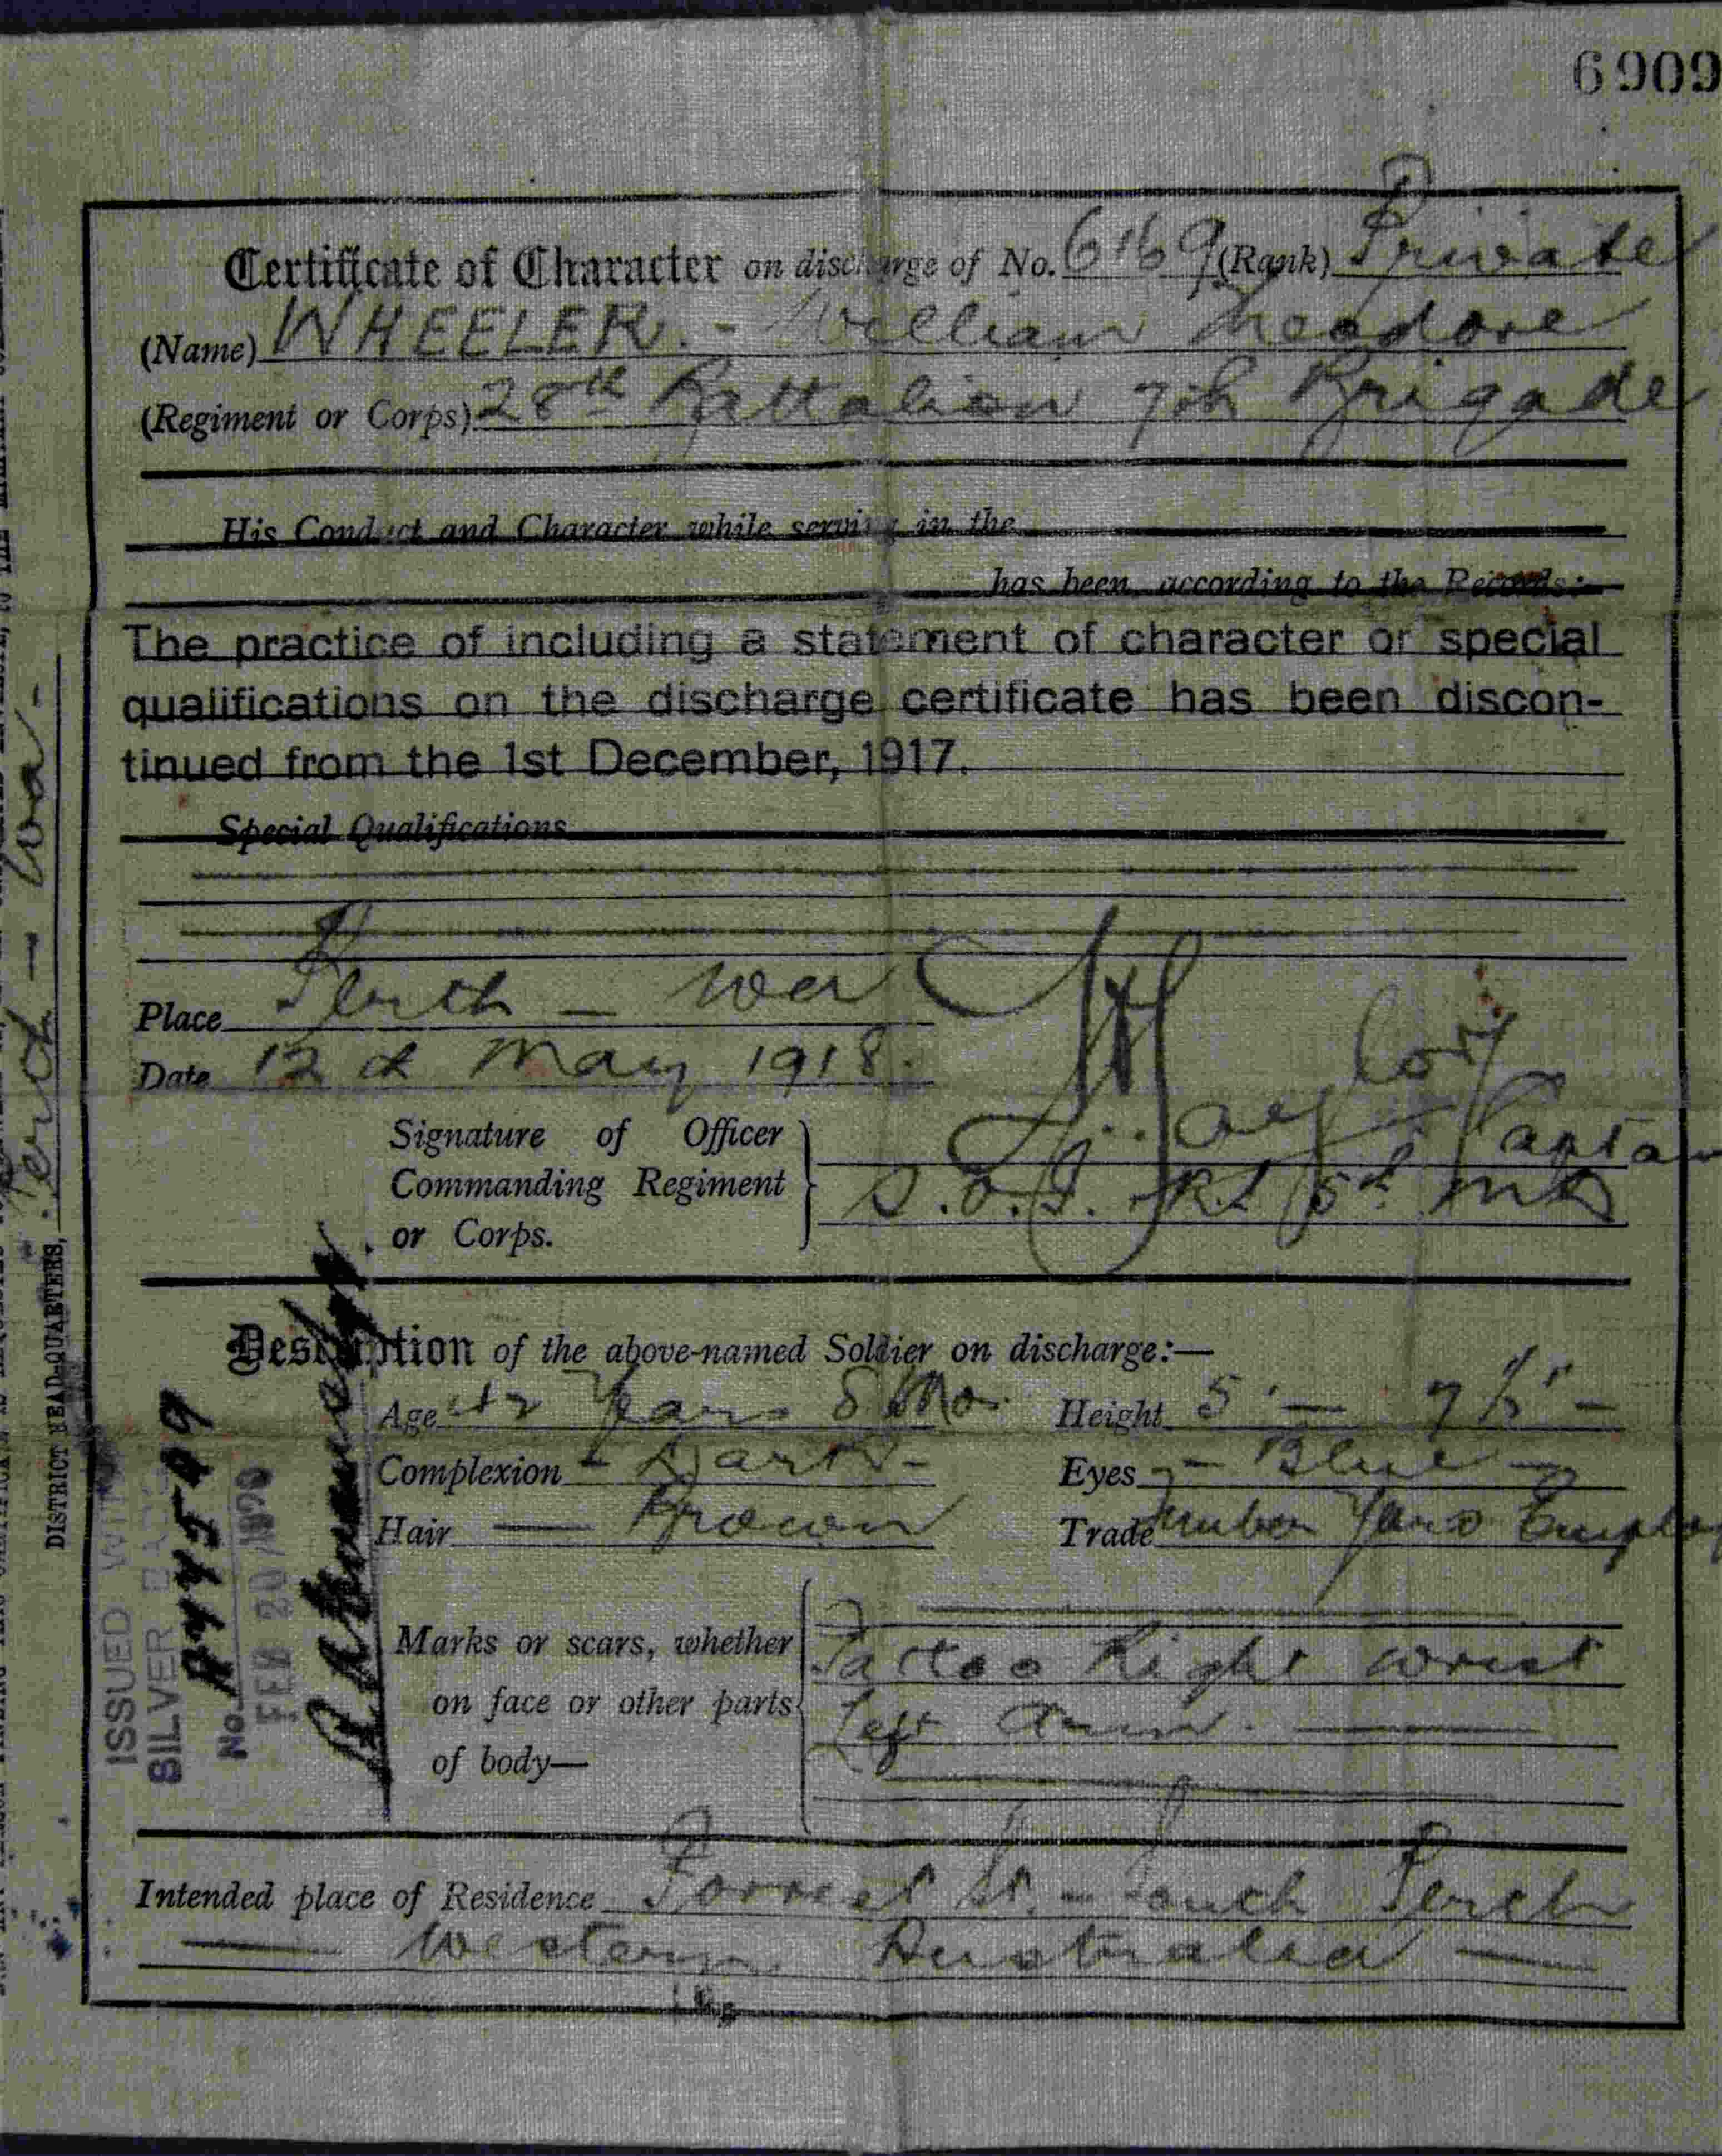 6909
Certificate of Character on discharge of No. 6169 (Rank) Private
(Name) WHEELER. - William Theodore
(Regiment or Corps) 28th Battalion 7th Brigade
His Conduct and Character while serving in the
has been, according to the Records:—
The practice of including a statement of character or special
qualifications on the discharge certificate has been discon-
tinued from the 1st December, 1917.
Special Qualifications
Place Perth - Wa
Date 12th May 1918.
Signature of Officer
Commanding Regiment
or Corps.
Captain
5th MD
Description of the above-named Soldier on discharge:—
Age 42 Years 8 Mo. Height 5' - 7½" -
Complexion - Dark - Eyes - Blue -
Hair — Brown Trade Timber Yard Employ
Marks or scars, whether
on face or other parts
of body—
Tattoo Right wrist
Left Arm. —
Intended place of Residence Forrest St. - South Perth
— Western Australia —
DISTRICT HEAD-QUARTERS, Perth - Wa -
ISSUED WITH
SILVER BADGE
No.
FEB 20 1920